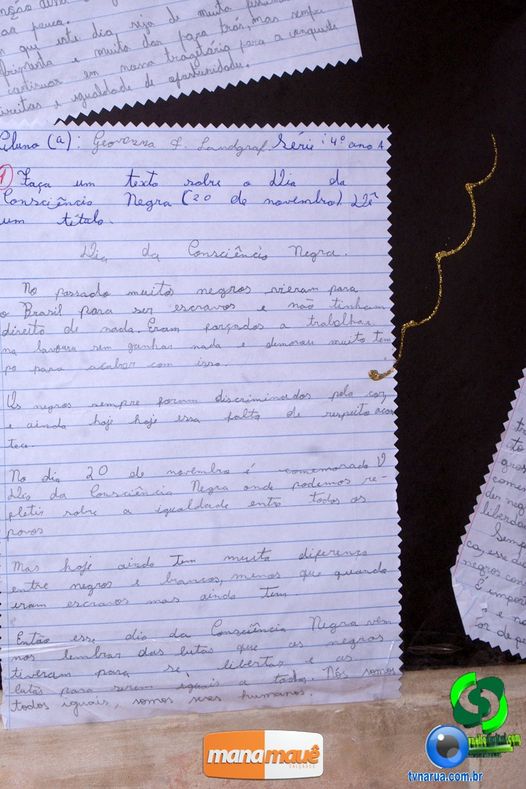 que este dia seja de muito
muito dor para trás, mas sempre
continuar em nossa trajetória para a conquista
direitos e igualdade de oportunidade.
Aluno (a): Geovanna F. Landgraf Série: 4º ano A
1) Faça um texto sobre o Dia da
Consciência Negra (20 de novembro). Dê
um título.
Dia da Consciência Negra.
No passado muitos negros vieram para
o Brasil para ser escravos e não tinham
direito de nada. Eram forçados a trabalhar
na lavoura sem ganhar nada e demorou muito tem
po para acabar com isso.
Os negros sempre foram discriminados pela cor
e ainda hoje hoje essa falta de respeito acon
tece.
No dia 20 de novembro é comemorado o
Dia da Consciência Negra onde podemos re-
fletir sobre a igualdade entre todos os
povos
Mas hoje ainda tem muita diferença
entre negros e brancos, menos que quando
eram escravos mas ainda tem.
Então esse dia da Consciência Negra vem
nos lembrar das lutas que os negros
tiveram para se libertar e as
lutas para serem iguais a todos. Nós somos
todos iguais, somos seres humanos.
manamauê
CALÇADOS
tvnarua.com.br